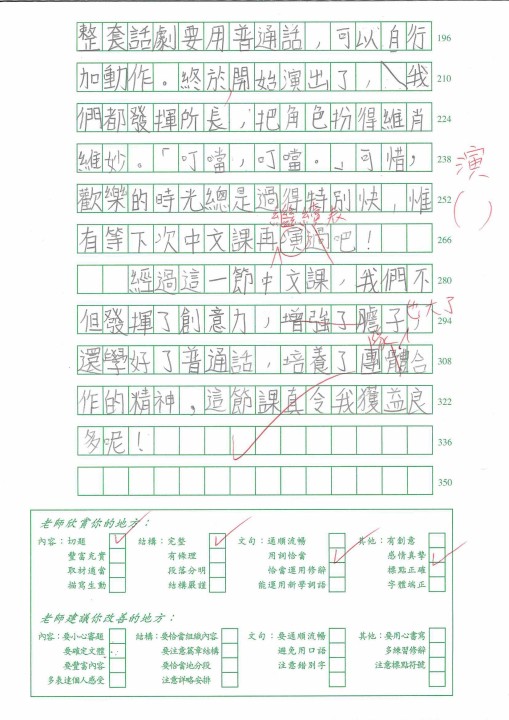 整套話劇要用普通話，可以自行 196
加動作。終於，開始演出了，我 210
們都發揮所長，把角色扮得維肖 224
維妙。「叮噹，叮噹。」可惜， 238
演
歡樂的時光總是過得特別快，惟 252
( )
繼續
有等下次中文課再演過吧！ 266
經過這一節中文課，我們不 280
但發揮了創意力，增強了膽子， 294
也大了
還學好了普通話，培養了團體合 308
作的精神，這節課真令我獲益良 322
多呢！ 336
350
老師欣賞你的地方：
內容：切題 結構：完整 文句：通順流暢 其他：有創意
豐富充實 有條理 用詞恰當 感情真摯
取材適當 段落分明 恰當運用修辭 標點正確
描寫生動 結構嚴謹 能運用新學詞語 字體端正
老師建議你改善的地方：
內容：要小心審題 結構：要恰當組織內容 文句：要通順流暢 其他：要用心書寫
要確定文體 要注意篇章結構 避免用口語 多練習修辭
要豐富內容 要恰當地分段 注意錯別字 注意標點符號
多表達個人感受 注意詳略安排